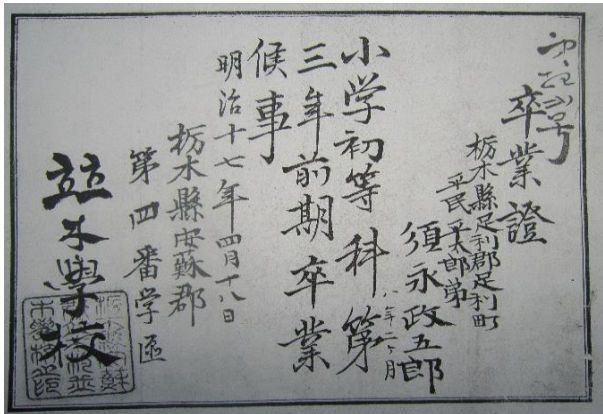 卒業證
栃木縣足利郡足利町
平民平太郎弟
須永政五郎
小学初等科第
三年前期卒業
候事
明治十七年四月十八日
栃木縣安蘇郡
第四番学区
竝木學校